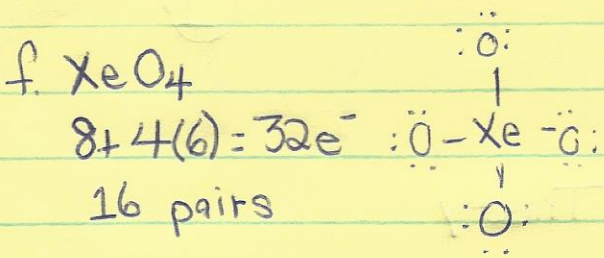 f. XeO4
8+4(6)=32e-
16 pairs
:Ö:
:Ö-Xe-Ö:
:O: